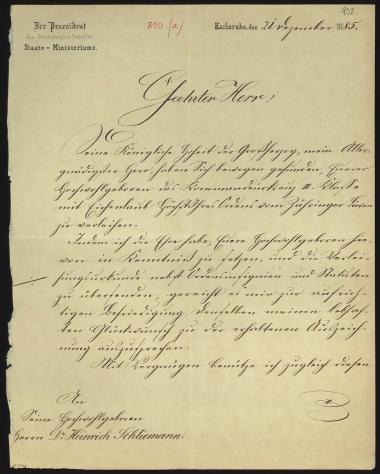 902
Der Praesident
des Grossherzoglich Badischen
Staats-Ministeriums.
800 (a)
Karlsruhe, den 21 Dezember 1885.
Geehrter Herr!
Seine Königliche Hoheit der Großherzog, mein Aller-
gnädigster Herr, haben Sich bewogen gefunden, Euerer
Hochwohlgeboren das Kommandeurkreuz II. Klasse
mit Eichenlaub Höchst Ihres Ordens vom Zähringer Löwen
zu verleihen.
Indem ich die Ehre habe, Euere Hochwohlgeboren hie-
von in Kenntniß zu setzen, und die Verlei-
hungsurkunde nebst Ordensinsignien und Statuten
zu übersenden, gereicht es mir zur aufrich-
tigen Befriedigung, denselben meinen lebhaf-
ten Glückwunsch zu der erhaltenen Auszeich-
nung auszusprechen.
Mit Vergnügen benütze ich zugleich diesen
An
Seine Hochwohlgeboren
Herrn Dr. Heinrich Schliemann.